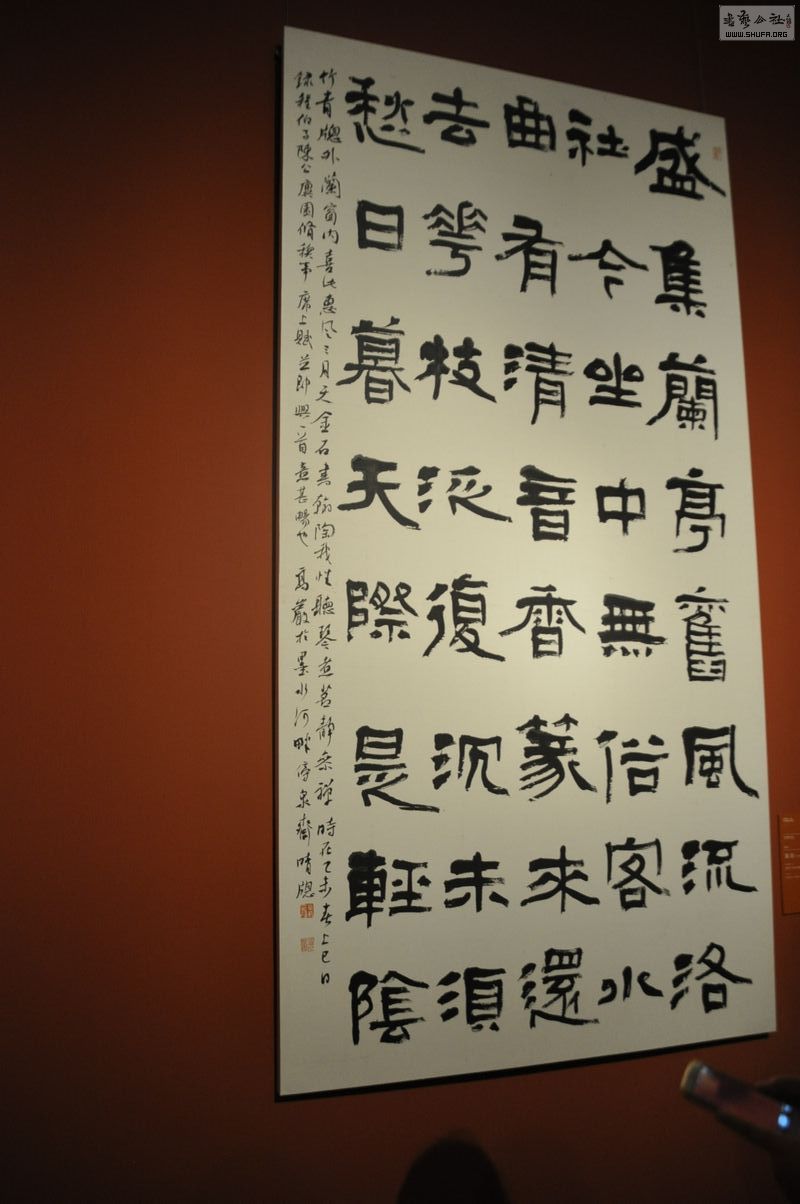 書藝公社
WWW.SHUFA.ORG
盛集蘭亭舊風流洛
社今坐中無俗客水
曲有清音香篆來還
去花枝泛復沉未須
愁日暮天際是輕陰
竹青牕外蘭窗内喜沐惠風三月天金石書翰陶我性聽琴煮茗静參禪時在乙未春上巳日
錄程伯子陳公廙園脩禊事席上賦並即興一首意甚暢也高嚴於墨水河畔停泉齋晴牕